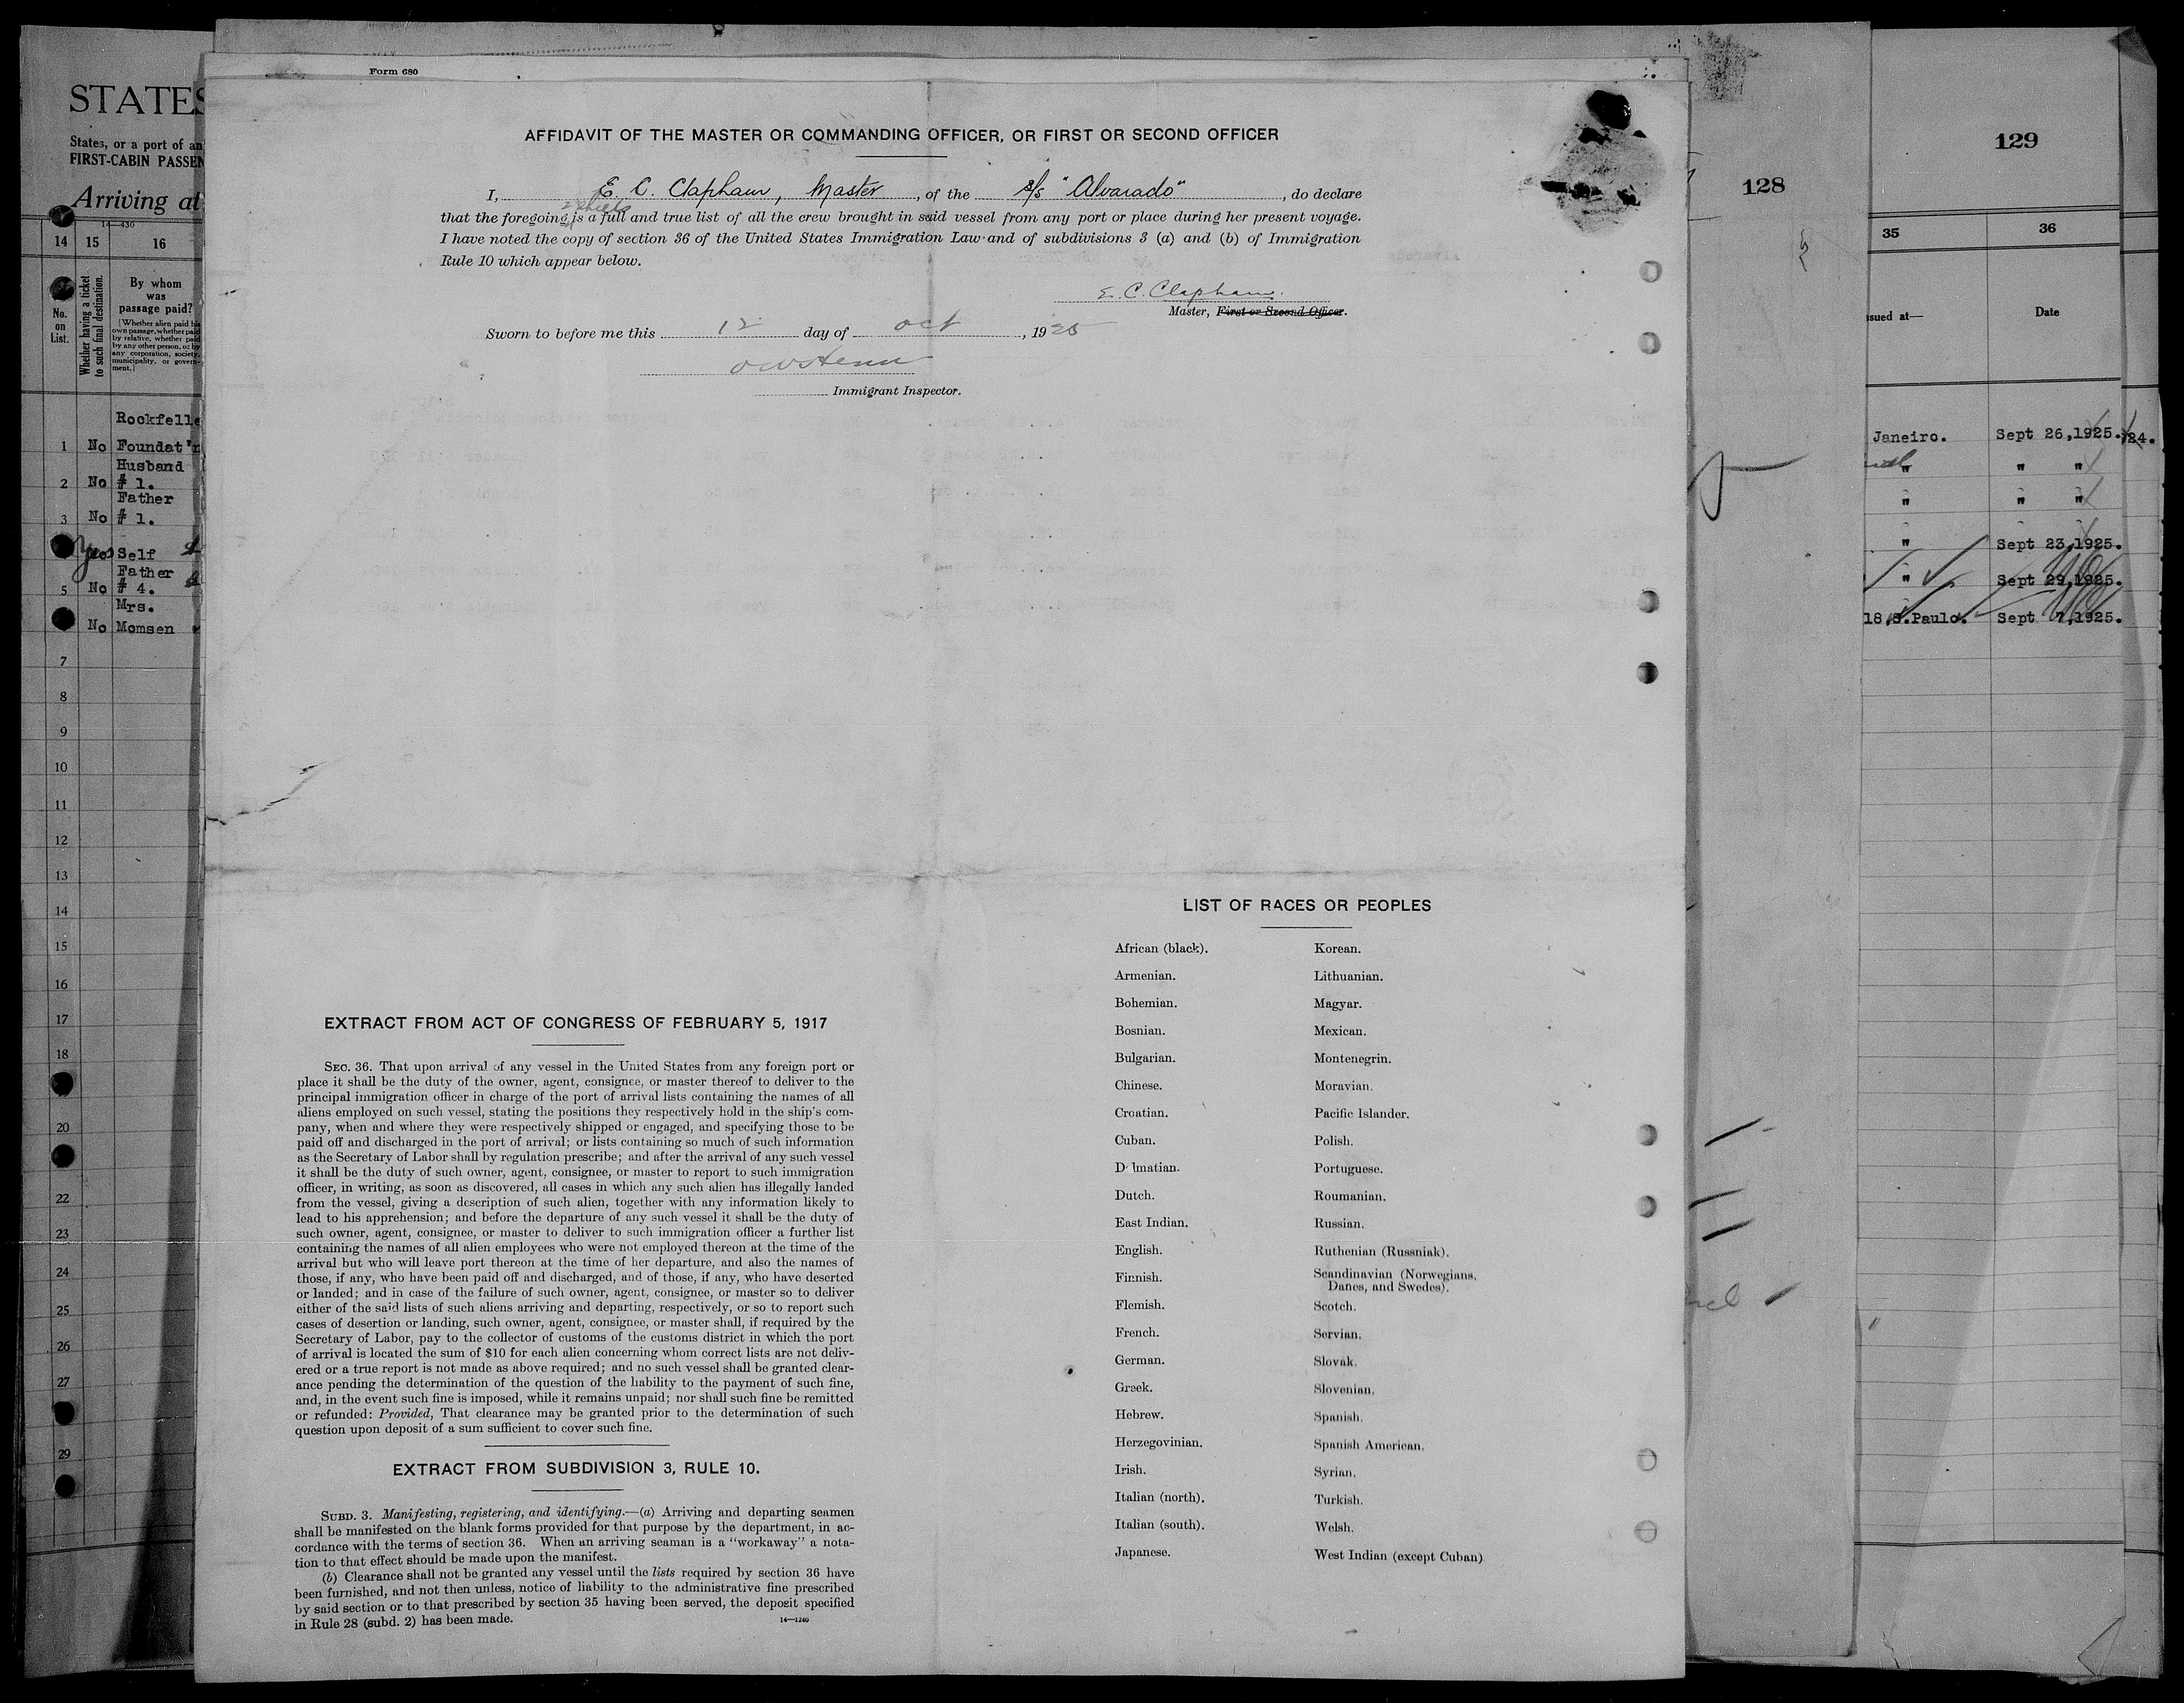 Form 680
AFFIDAVIT OF THE MASTER OR COMMANDING OFFICER, OR FIRST OR SECOND OFFICER
I, E. C. Clapham, Master, of the s/s "Alvarado", do declare
2 sheets
that the foregoing is a full and true list of all the crew brought in said vessel from any port or place during her present voyage.
I have noted the copy of section 36 of the United States Immigration Law and of subdivisions 3 (a) and (b) of Immigration
Rule 10 which appear below.
E. C. Clapham.
Master, First or Second Officer.
Sworn to before me this 12 day of Oct, 1925
Immigrant Inspector.
EXTRACT FROM ACT OF CONGRESS OF FEBRUARY 5, 1917
SEC. 36. That upon arrival of any vessel in the United States from any foreign port or
place it shall be the duty of the owner, agent, consignee, or master thereof to deliver to the
principal immigration officer in charge of the port of arrival lists containing the names of all
aliens employed on such vessel, stating the positions they respectively hold in the ship's com-
pany, when and where they were respectively shipped or engaged, and specifying those to be
paid off and discharged in the port of arrival; or lists containing so much of such information
as the Secretary of Labor shall by regulation prescribe; and after the arrival of any such vessel
it shall be the duty of such owner, agent, consignee, or master to report to such immigration
officer, in writing, as soon as discovered, all cases in which any such alien has illegally landed
from the vessel, giving a description of such alien, together with any information likely to
lead to his apprehension; and before the departure of any such vessel it shall be the duty of
such owner, agent, consignee, or master to deliver to such immigration officer a further list
containing the names of all alien employees who were not employed thereon at the time of the
arrival but who will leave port thereon at the time of her departure, and also the names of
those, if any, who have been paid off and discharged, and of those, if any, who have deserted
or landed; and in case of the failure of such owner, agent, consignee, or master so to deliver
either of the said lists of such aliens arriving and departing, respectively, or so to report such
cases of desertion or landing, such owner, agent, consignee, or master shall, if required by the
Secretary of Labor, pay to the collector of customs of the customs district in which the port
of arrival is located the sum of $10 for each alien concerning whom correct lists are not deliv-
ered or a true report is not made as above required; and no such vessel shall be granted clear-
ance pending the determination of the question of the liability to the payment of such fine,
and, in the event such fine is imposed, while it remains unpaid; nor shall such fine be remitted
or refunded: Provided, That clearance may be granted prior to the determination of such
question upon deposit of a sum sufficient to cover such fine.
EXTRACT FROM SUBDIVISION 3, RULE 10.
SUBD. 3. Manifesting, registering, and identifying.—(a) Arriving and departing seamen
shall be manifested on the blank forms provided for that purpose by the department, in ac-
cordance with the terms of section 36. When an arriving seaman is a "workaway" a nota-
tion to that effect should be made upon the manifest.
(b) Clearance shall not be granted any vessel until the lists required by section 36 have
been furnished, and not then unless, notice of liability to the administrative fine prescribed
by said section or to that prescribed by section 35 having been served, the deposit specified
in Rule 28 (subd. 2) has been made.
14—1240
LIST OF RACES OR PEOPLES
African (black).
Armenian.
Bohemian.
Bosnian.
Bulgarian.
Chinese.
Croatian.
Cuban.
D lmatian.
Dutch.
East Indian.
English.
Finnish.
Flemish.
French.
German.
Greek.
Hebrew.
Herzegovinian.
Irish.
Italian (north).
Italian (south).
Japanese.
Korean.
Lithuanian.
Magyar.
Mexican.
Montenegrin.
Moravian.
Pacific Islander.
Polish.
Portuguese.
Roumanian.
Russian.
Ruthenian (Russniak).
Scandinavian (Norwegians,
Danes, and Swedes).
Scotch.
Servian.
Slovak.
Slovenian.
Spanish.
Spanish American.
Syrian.
Turkish.
Welsh.
West Indian (except Cuban)
STATES
States, or a port of an
FIRST-CABIN PASSEN
Arriving at
14—430
14 15 16
No.
on
List.
Whether having a ticket
to such final destination.
By whom
was
passage paid?
(Whether alien paid his
own passage, whether paid
by relative, whether paid
by any other person, or by
any corporation, society,
municipality, or govern-
ment.)
Rockfelle
1 No Foundat'n
Husband
2 No # 1.
Father
3 No # 1.
Yes Self
Father
5 No # 4.
Mrs.
No Momsen
7
8
9
10
11
12
13
14
15
16
17
18
20
22
23
24
25
26
27
29
128
129
35 36
ssued at— Date
Janeiro. Sept 26,1925. 24.
" " "
" " "
" Sept 23,1925.
" Sept 29,1925.
18,S.Paulo. Sept 7,1925.